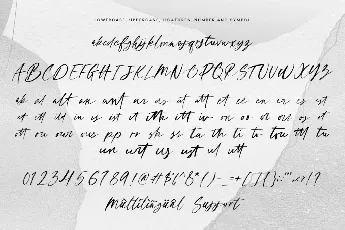 LOWERCASE, UPPERCASE, LIGATURES, NUMBER AND SYMBOL
abcdefghijklmnopqrstuvwxyz
ABCDEFGHIJKLMNOPQRSTUVWXYZ
ak al all an ant ar as at att et ee en er es est
et ill in is ist it itt iv on oo or os ot
ott ou our ous pp ro sh ss ta th ti to tou ttt tu
un urt us ust ul utt
0123456789!@#$%^&*()-_=+[]{};:'",.<>/?
Multilingual Support